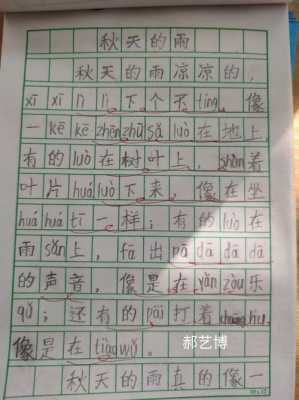 秋天的雨
秋天的雨凉凉的，
xī xī lì lì 下个不 tíng。像
一 kē kē zhēn zhū sǎ luò 在地上
有的 luò 在树叶上，shùn 着
叶片 huá luò 下来，像在坐
huá huá tī 一样；有的 luò 在
雨 sǎn 上，fā 出 pā dā dā dā
的声音。像是在 yǎn zòu 乐
qǔ；还有的 pāi 打着
像是在 tiào wǔ。
郝艺博
秋天的雨真的像一